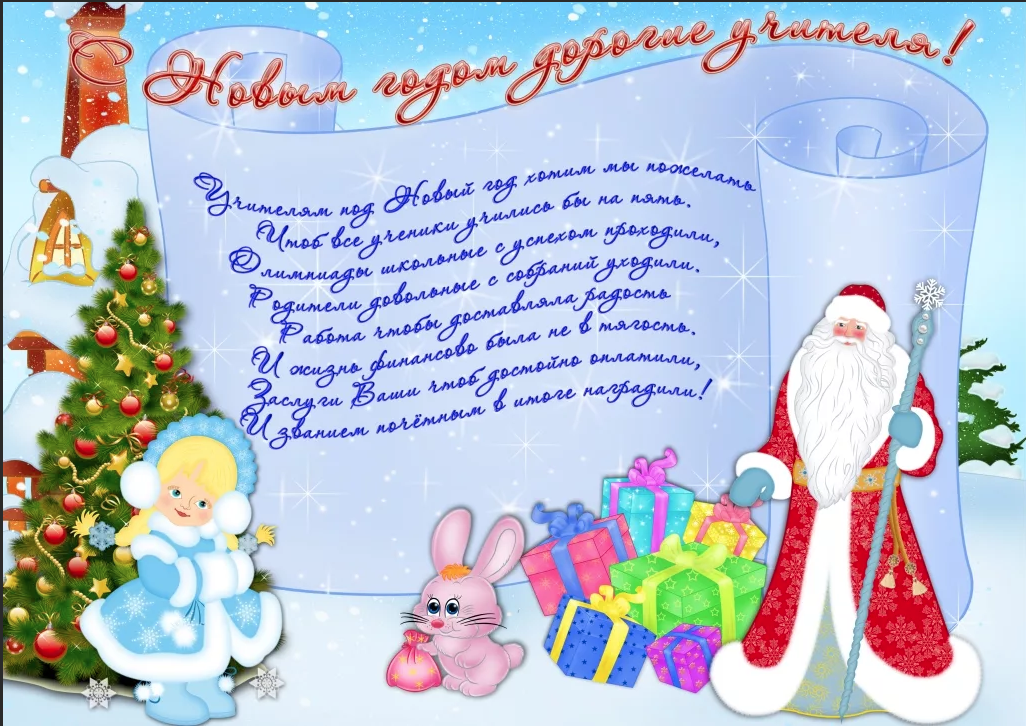 С Новым годом дорогие учителя!
Учителям под Новый год хотим мы пожелать
Чтоб все ученики учились бы на пять.
Олимпиады школьные с успехом проходили,
Родители довольные с собраний уходили.
Работа чтобы доставляла радость
И жизнь финансово была не в тягость.
Заслуги Ваши чтоб достойно оплатили,
И званием почётным в итоге наградили!